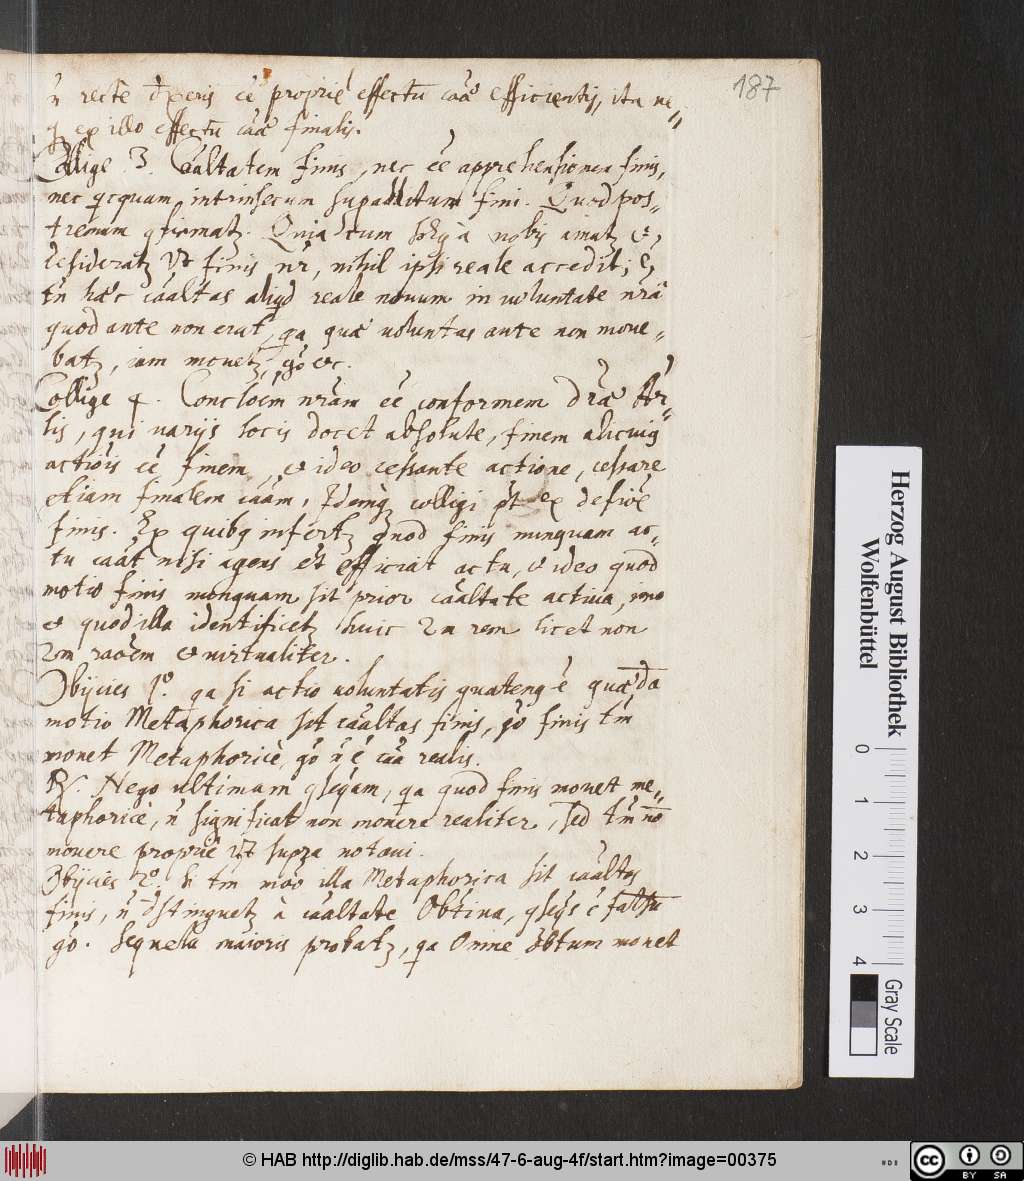 187
n̄ recte dixeris eē proprie effectū caāe efficientis, ita ne=
q̄ ex illo effectū caāe finalis.
Collige 3. Caāltatem finis, nec eē apprehensionem finis,
nec qcquam intrinsecum superadditum fini. Quod pos=
tremum qfirmatz. Quia cum a nobis amatz et
desideratz vt finis nr, nihil ipsi reale accedit; &
tn̄ haec caāltas aliqd reale nouum in voluntate nrā
quod ante non erat, qa quae voluntas ante non moue=
batz, iam mouetz, gō &c.
Collige 4. Conclōem nrām eē conformem drāe Ar=
lis, qui varijs locis docet absolute, finem alicuiq
actiōis eē finem, & ideo cessante actione, cessare
etiam finalem caām, Idemq colligi pt ex defiōe
finis. Ex quibq infertz quod finis nunquam ac=
tu caāt nisi agens et efficiat actu, & ideo quod
motio finis nunquam sit prior caāltate actiua, imo
& quod illa identificetz huic 2m rem licet non
2m raōem & virtualiter.
Obijcies 1o. qa si actio voluntatis quatenq ē quaedā
motio Metaphorica sit caāltas finis, gō finis tm̄
mouet Metaphoricè, gō n̄ ē caā realis.
R. Nego ultimam qseqam, qa quod finis mouet me=
taphoricè, n̄ significat non mouere realiter, sed tm̄ nō
mouere propriè vt supra notaui.
Obijcies 2o. si tm̄ moō illa Metaphorica sit caāltas
finis, n̄ distinguetz à caāltate Obtiua, qseqs ē falsū
gō. Sequela maioris probatz, qa Omne obtum mouet
Herzog August Bibliothek
Wolfenbüttel
0 1 2 3 4
Gray Scale
© HAB http://diglib.hab.de/mss/47-6-aug-4f/start.htm?image=00375
cc BY SA